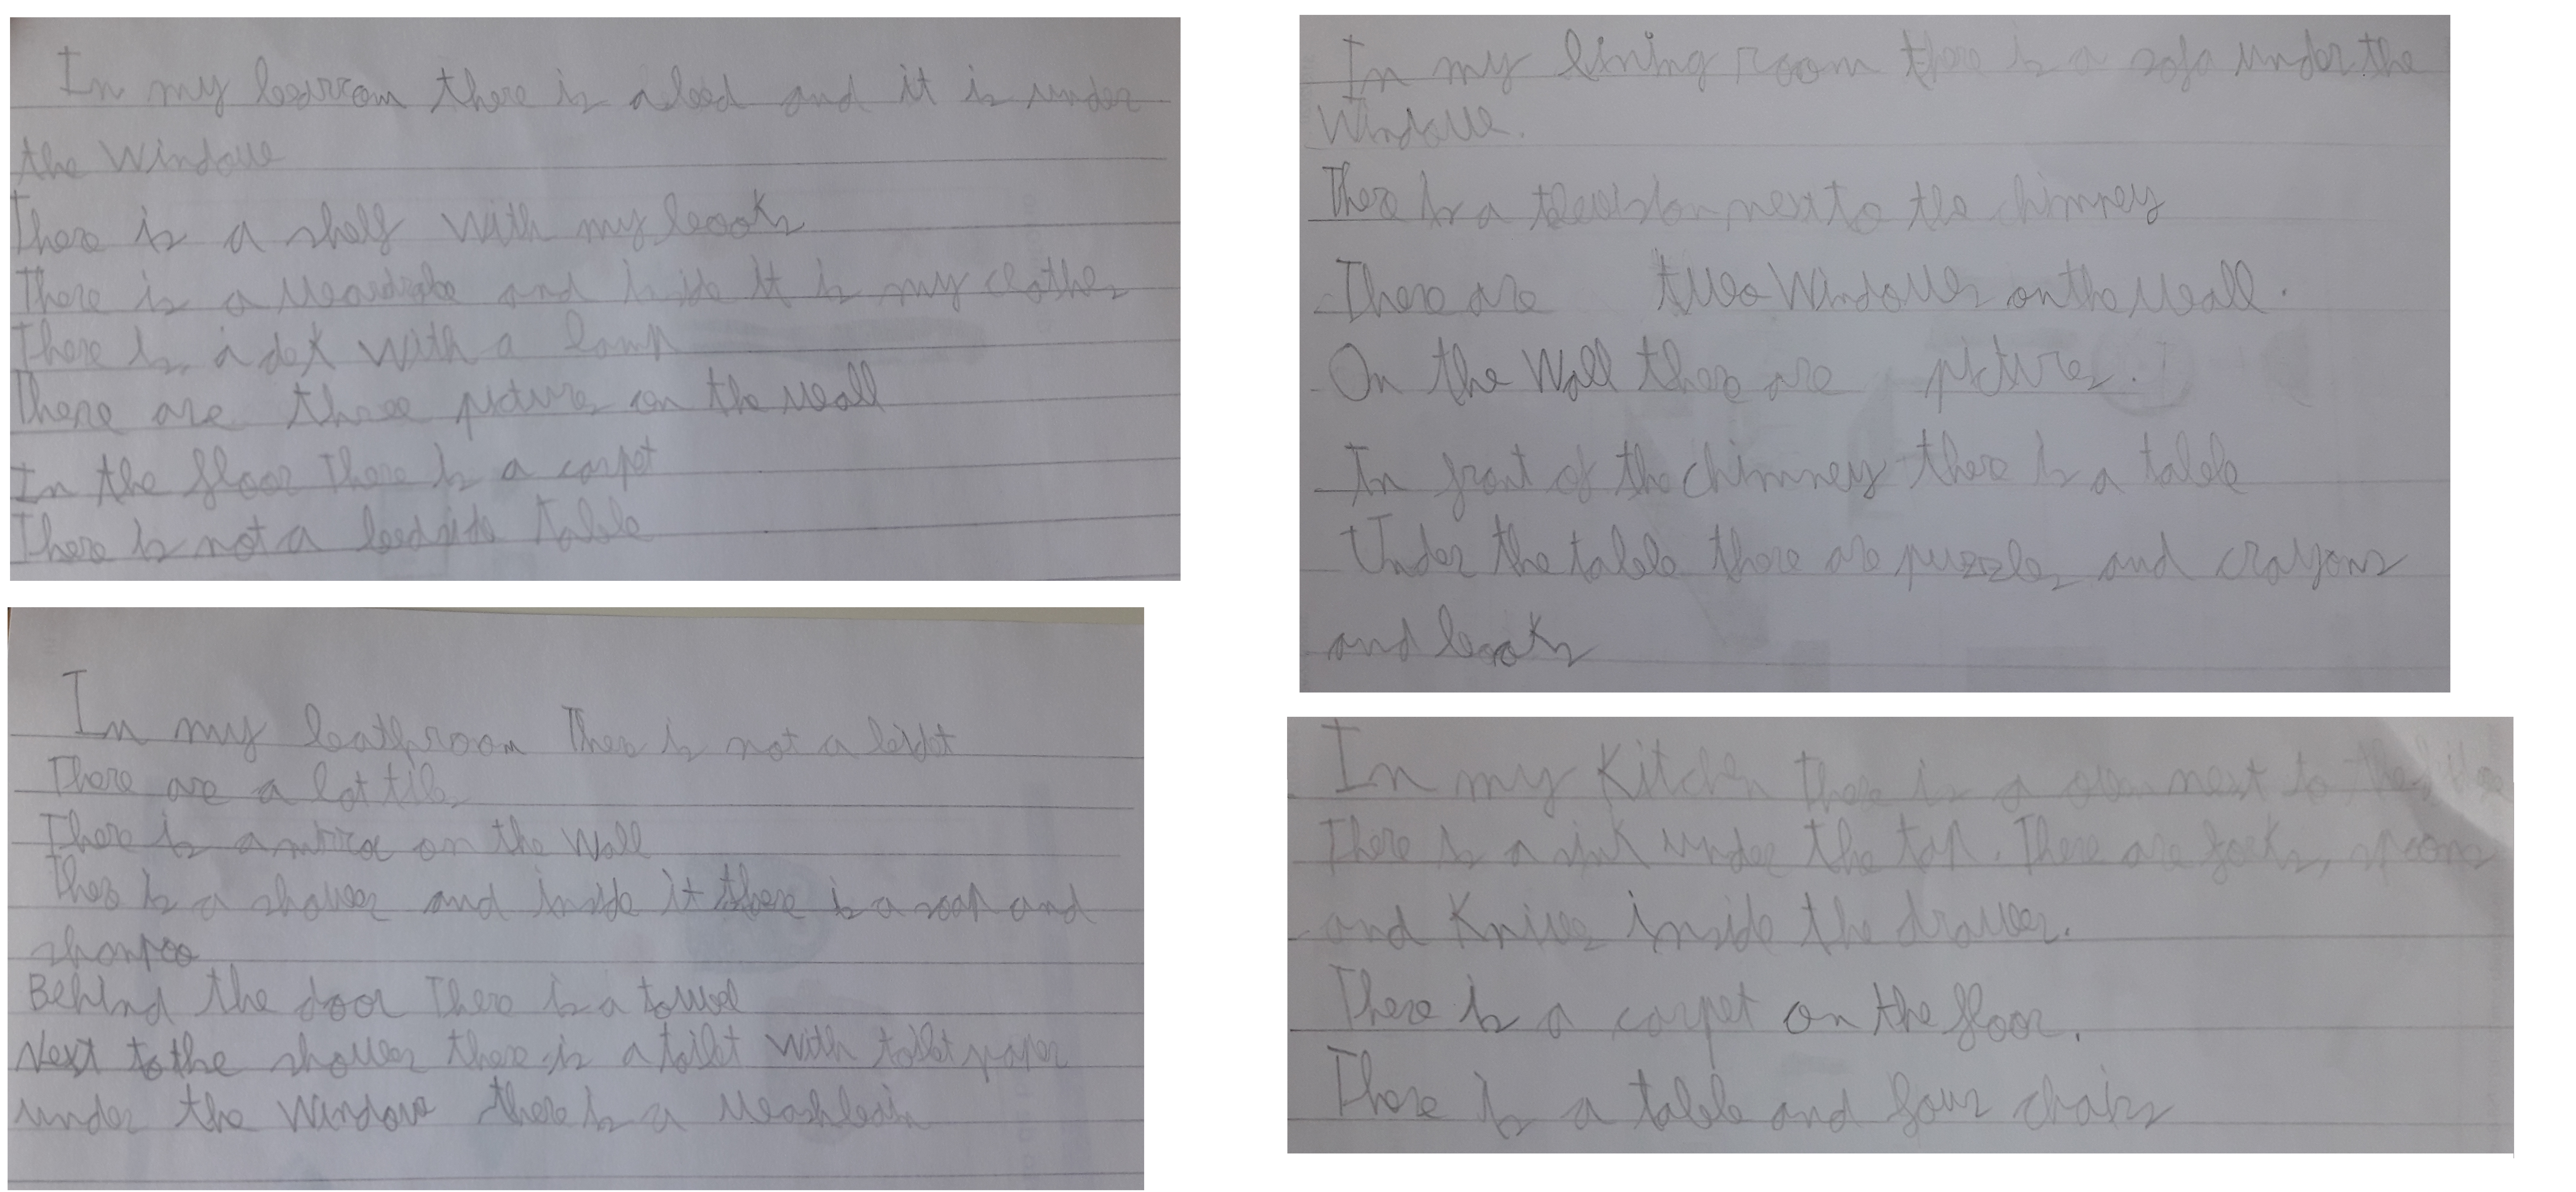 In my bedroom there is a bed and it is under
the Window
There is a shelf with my books
There is a wardrobe and inside it is my clothes
There is a desk with a lamp
There are three pictures on the wall
In the floor There is a carpet
There is not a bedside table
In my bathroom There is not a
There are a lot tiles
There is a on the Wall
There is a shower and inside it there is a soap and
shampoo
Behind the door There is a towel
Next to the shower there is a toilet with toilet paper
under the Window there is a washbasin
In my living room there is a sofa under the
Window.
There is a television next to the chimney
There are two Windows on the wall.
On the Wall there are pictures.
In front of the chimney there is a table
Under the table there are puzzles and crayons
and books
In my Kitchen there is a oven next to the
There is a sink under the tap. There are forks, spoons
and Knives inside the drawer.
There is a carpet on the floor.
There is a table and four chairs